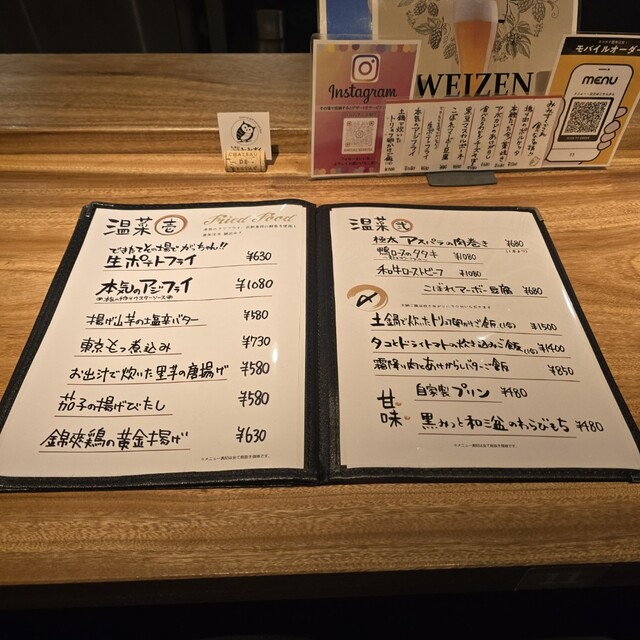 Instagram
WEIZEN
モバイルオーダー
MENU
温菜 壱
Fried Food
できたてその場でがっちゃん!!
生ポテトフライ ¥630
本気のアジフライ ¥1080
揚げ山芋の塩辛バター ¥580
東京もつ煮込み ¥730
お出汁で炊いた里芋の唐揚げ ¥580
茄子の揚げびたし ¥580
錦爽鶏の黄金揚げ ¥630
※メニュー表記はすべて税抜き価格です。
温菜 弐
極太アスパラの肉巻き ¥680
鴨ロースのタタキ ¥1080
和牛ローストビーフ ¥1080
こぼれマーボー豆腐 ¥680
〆
土鍋で炊いたトリュフ卵かけご飯(1合) ¥1500
タコとドライトマトの炊き込みご飯(1合) ¥1400
霜降り肉とあけがらしバターご飯 ¥850
甘味
自家製プリン ¥480
黒みつと和三盆のわらびもち ¥480